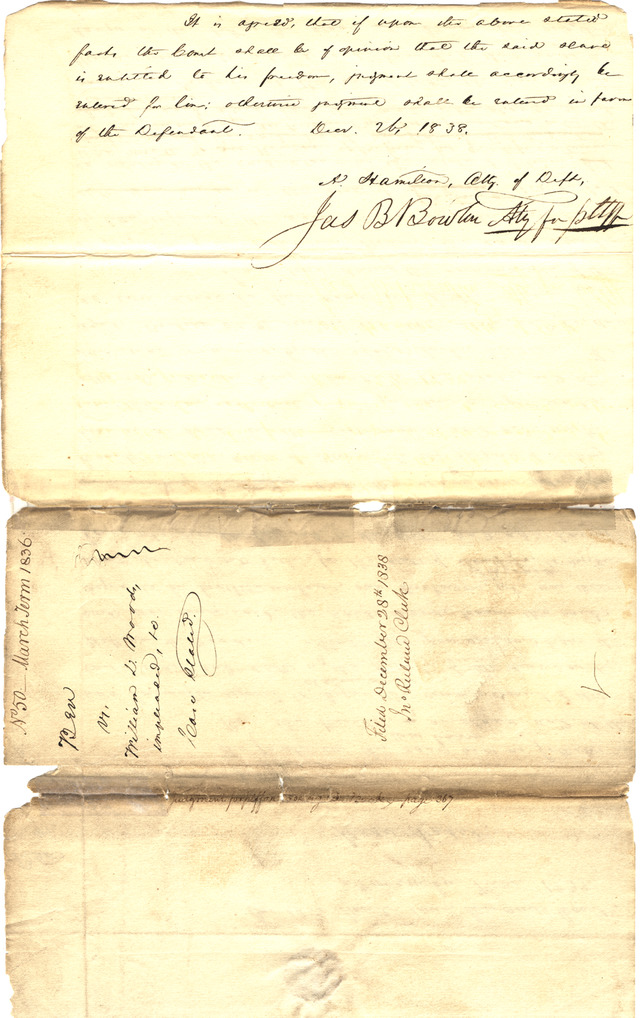 It is agreed, that if upon the above stated
facts the Court shall be of opinion that the said slave
is entitled to his freedom, judgment shall accordingly be
entered for him; otherwise judgment shall be entered in favor
of the Defendant. Decr. 26, 1838.
A. Hamilton, Atty. of Deft,
Jas B Bowlin Atty for pltff
No 50 March Term 1836
Ben
vs.
William D. Woods,
impleaded, &c.
Case Stated.
Filed December 28th 1838
Jno Ruland Clerk
judgment page 367